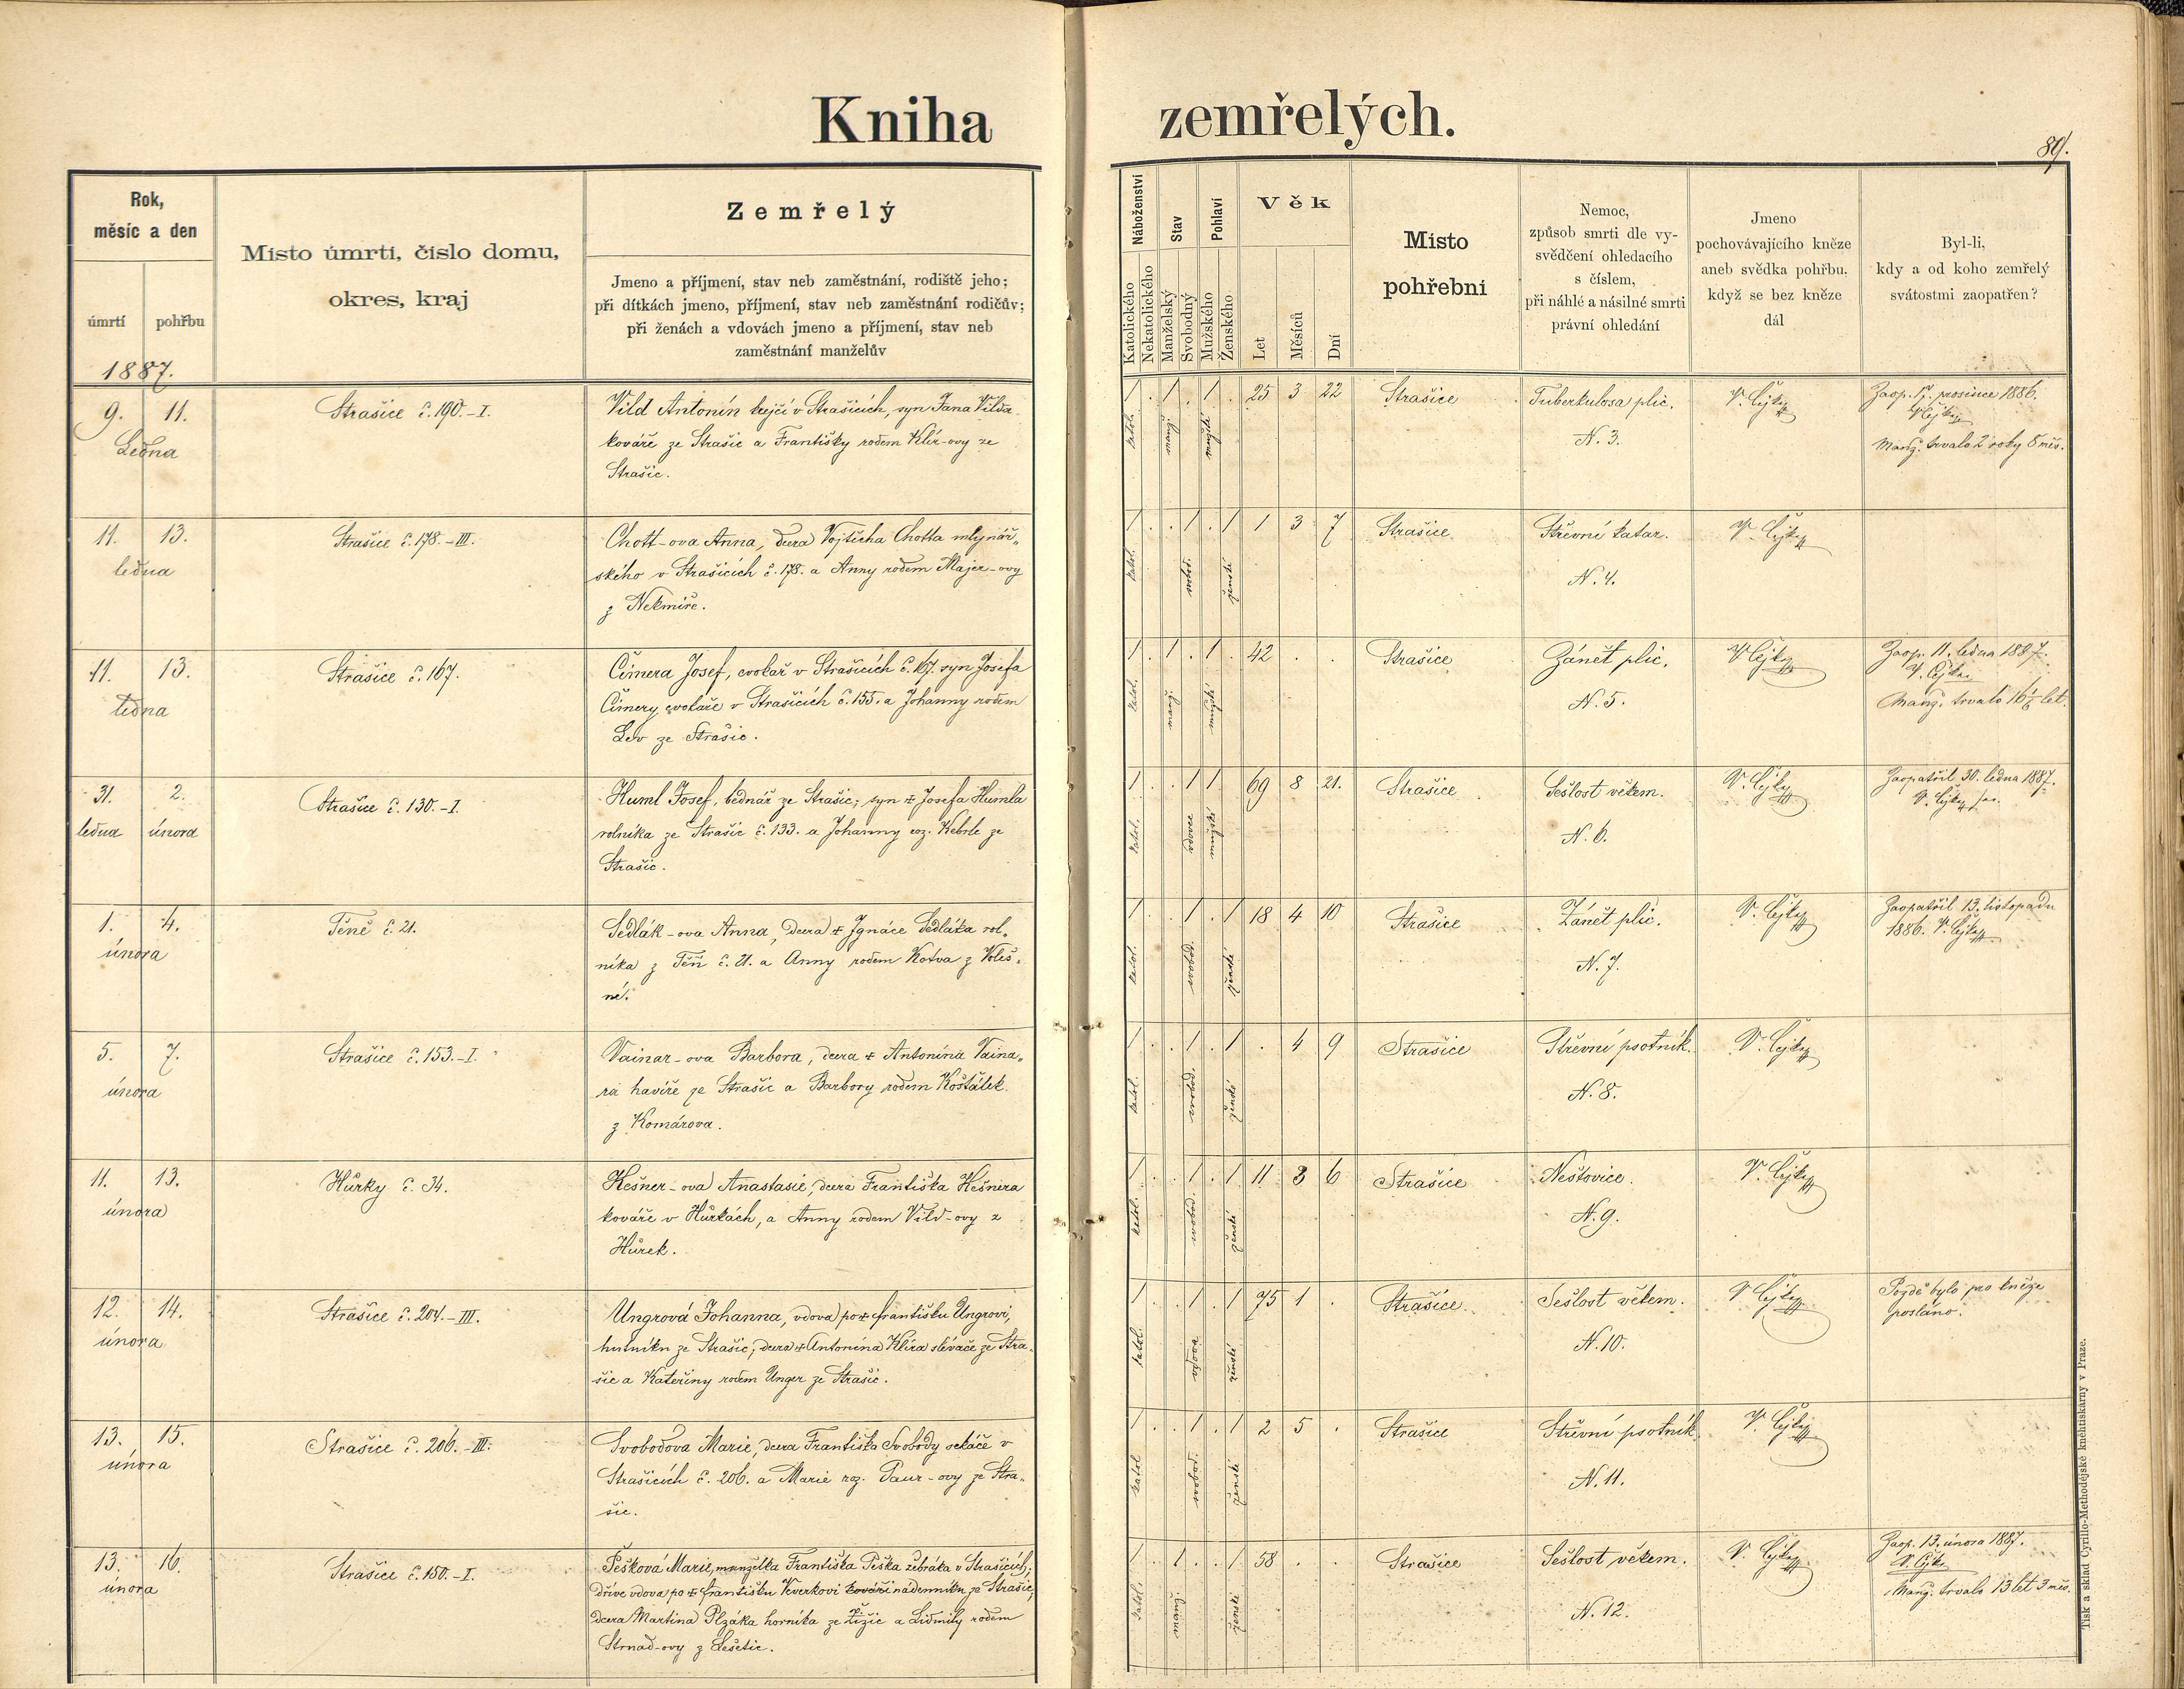 Kniha zemřelých.
89.
Rok,
měsíc a den
úmrtí
pohřbu
1887.
Místo úmrtí, číslo domu,
okres, kraj
Zemřelý
Jmeno a příjmení, stav neb zaměstnání, rodiště jeho;
při dítkách jmeno, příjmení, stav neb zaměstnání rodičův;
při ženách a vdovách jmeno a příjmení, stav neb
zaměstnání manželův
Náboženství
Katolického
Nekatolického
Stav
Manželský
Svobodný
Pohlaví
Mužského
Ženského
Věk
Let
Měsíců
Dní
Místo
pohřební
Nemoc,
způsob smrti dle vy-
svědčení ohledacího
s číslem,
při náhlé a násilné smrti
právní ohledání
Jmeno
pochovávajícího kněze
aneb svědka pohřbu,
když se bez kněze
dál
Byl-li,
kdy a od koho zemřelý
svátostmi zaopatřen?
9. 11.
Ledna
Strašice č. 190.-I.
Vild Antonín krejčí v Strašicích, syn Jana Vilda
kováře ze Strašic a Františky rodem Klír-ovy ze
Strašic.
1 . 1 . 1 . 25 3 22
katol. mužské
Strašice
Tuberkulosa plic.
N. 3.
V. Čejka
Zaop. 17. prosince 1886.
V. Čejka
Manž. trvalo 2 roky 8 měs.
11. 13.
ledna
Strašice č. 178.-III.
Chott-ova Anna, dcera Vojtěcha Chotta mlynář-
ského v Strašicích č. 178. a Anny rodem Majer-ovy
z Nekmíře.
1 . . 1 . 1 1 3 7
katol. svobod. ženské
Strašice
Střevní katar.
N. 4.
V. Čejka
11. 13.
ledna
Strašice č. 167.
Čimera Josef, cvokař v Strašicích č. 167. syn Josefa
Čimery cvokaře v Strašicích č. 155. a Johanny rodem
Lev ze Strašic.
1 . 1 . 1 . 42 . .
katol. manž. mužské
Strašice
Zánět plic.
N. 5.
V. Čejka
Zaop. 11. ledna 1887.
V. Čejka
Manž. trvalo 16 let.
31. 2.
ledna února
Strašice č. 130.-I.
Huml Josef, bednář ze Strašic, syn ✝ Josefa Humla
rolníka ze Strašic č. 133. a Johanny roz. Kebrle ze
Strašic.
1 . . 1 1 . 69 8 21.
katol. vdovec mužské
Strašice
Sešlost věkem.
N. 6.
V. Čejka
Zaopatřil 30. ledna 1887.
V. Čejka
1. 4.
února
Těně č. 21.
Sedlák-ova Anna, dcera ✝ Ignáce Sedláka rol-
níka z Těň č. 21. a Anny rodem Kotva z Voleš-
né.
1 . . 1 . 1 18 4 10
katol. svobod. ženské
Strašice
Zánět plic.
N. 7.
V. Čejka
Zaopatřil 13. listopadu
1886. V. Čejka
5. 7.
února
Strašice č. 153.-I.
Vainar-ova Barbora, dcera ✝ Antonína Vaina-
ra havíře ze Strašic a Barbory rodem Košťálek
z Komárova.
1 . . 1 . 1 . 4 9
katol. svobod. ženské
Strašice
Střevní psotník.
N. 8.
V. Čejka
11. 13.
února
Hůrky č. 34.
Kešner-ova Anastasie, dcera Františka Kešnera
kováře v Hůrkách, a Anny rodem Vild-ovy z
Hůrek.
1 . . 1 . 1 11 8 6
katol. svobod. ženské
Strašice
Neštovice.
N. 9.
V. Čejka
12. 14.
února
Strašice č. 204.-III.
Ungrová Johanna, vdova po ✝ Františku Ungrovi,
hutníku ze Strašic; dcera ✝ Antonína Klíra slévače ze Stra-
šic a Kateřiny rodem Unger ze Strašic.
1 . . 1 . 1 75 1 .
katol. vdova ženské
Strašice
Sešlost věkem.
N. 10.
V. Čejka
Pozdě bylo pro kněze
posláno.
13. 15.
února
Strašice č. 206.-III.
Svobodova Marie, dcera Františka Svobody sekáče v
Strašicích č. 206. a Marie roz. Paur-ovy ze Stra-
šic.
1 . . 1 . 1 2 5 .
katol. svobod. ženské
Strašice
Střevní psotník
N. 11.
V. Čejka
13. 16.
února
Strašice č. 150.-I.
Pešková Marie, manželka Františka Peška žebráka v Strašicích;
dříve vdova po ✝ Františku Kverkovi kováři nádenníku ze Strašic,
dcera Martina Plzáka horníka ze a Lidmily rodem
Strnad-ovy z Lešetic.
1 . 1 . . 1 58 . .
katol. manž. ženské
Strašice
Sešlost věkem.
N. 12.
V. Čejka
Zaop. 13. února 1887.
V. Čejka
Manž. trvalo 13 let 3 měs.
Tisk a sklad Cyrillo-Methodějské kněhtiskárny v Praze.